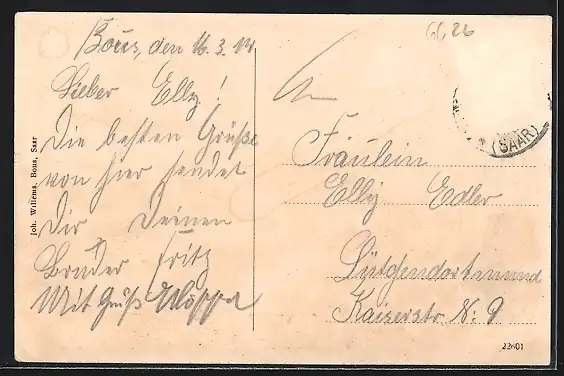 Bous, den 16.3.14.
Lieber Elly!
Die besten Grüße
von hier sendet
Dir Deinen
Bruder Fritz
Mit Gruß
Joh. Willems, Bous, Saar
6626
(SAAR)
An
Fräulein
Elly Edler
Lütgendortmund
Kaiserstr. N: 9
22601